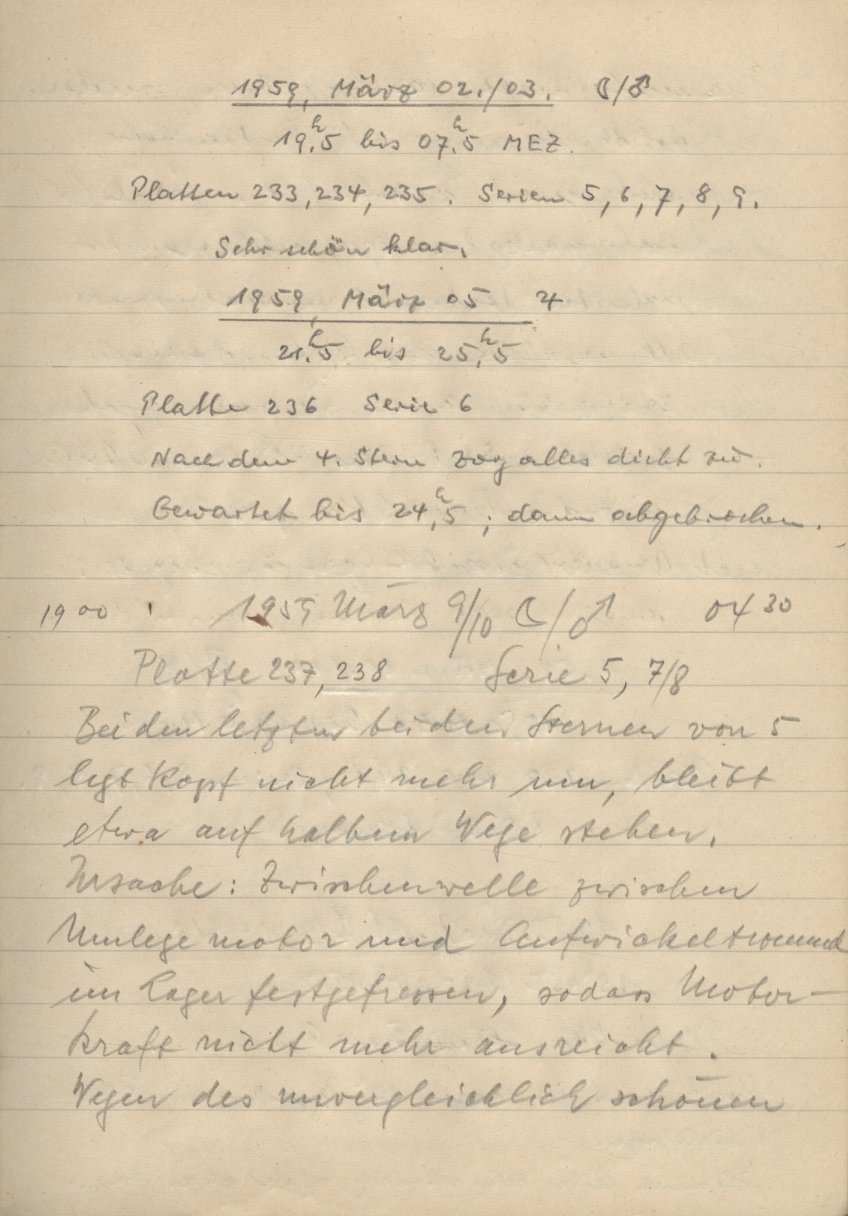 1959, März 02./03. ☾/♂
19.ʰ5 bis 07.ʰ5 MEZ.
Platten 233, 234, 235. Serien 5, 6, 7, 8, 9.
Sehr schön klar.
1959, März 05 ♃
21.ʰ5 bis 25.ʰ5
Platte 236 Serie 6
Nach dem 4. Stern zog alles dicht zu.
Gewartet bis 24,ʰ5; dann abgebrochen.
19 00 1959 März 9/10 ☾/♂ 04 30
Platte 237, 238 Serie 5, 7/8
Bei den letzten beiden Sternen von 5
legt Kopf nicht mehr um, bleibt
etwa auf halbem Wege stehen.
Ursache: Zwischenwelle zwischen
Umlegemotor und Aufwickeltrommel
im Lager festgefressen, sodass Motor-
kraft nicht mehr ausreicht.
Wegen des unvergleichlich schönen